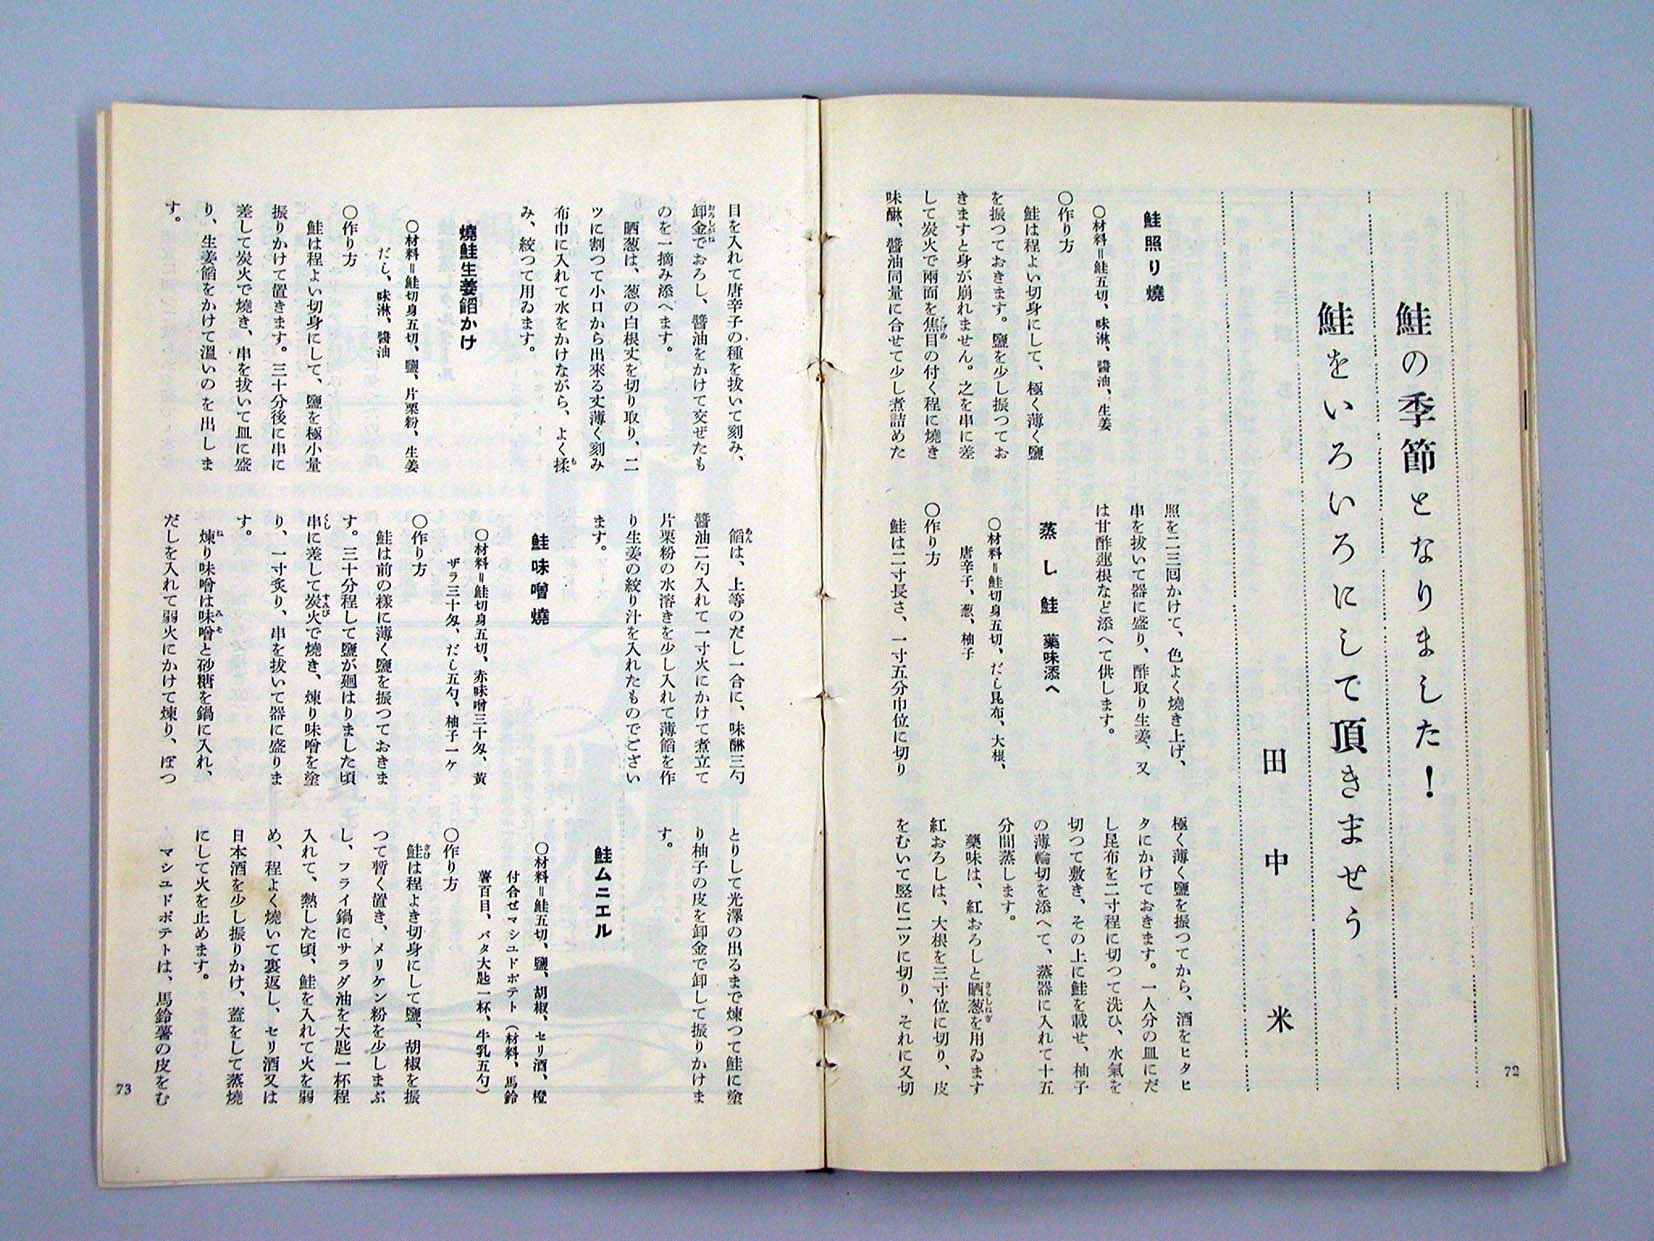 鮭の季節となりました！
鮭をいろいろにして頂きませう
田中米
鮭照り燒
○材料＝鮭五切、味淋、醬油、生姜
○作り方
鮭は程よい切身にして、極く薄く鹽
を振つておきます。鹽を少し振つてお
きますと身が崩れません。之を串に差
して炭火で兩面を焦目の付く程に燒き
味醂、醬油同量に合せて少し煮詰めた
照を二三回かけて、色よく燒き上げ、
串を拔いて器に盛り、酢取り生姜、又
は甘酢蓮根など添へて供します。
蒸し鮭 藥味添へ
○材料＝鮭切身五切、だし昆布、大根、
唐辛子、葱、柚子
○作り方
鮭は二寸長さ、一寸五分巾位に切り
極く薄く鹽を振つてから、酒をヒタヒ
タにかけておきます。一人分の皿にだ
し昆布を二寸程に切つて洗ひ、水氣を
切つて敷き、その上に鮭を載せ、柚子
の薄輪切を添へて、蒸器に入れて十五
分間蒸します。
藥味は、紅おろしと晒葱を用ゐます
紅おろしは、大根を三寸位に切り、皮
をむいて竪に二ツに切り、それに又切
72
目を入れて唐辛子の種を拔いて刻み、
卸金でおろし、醬油をかけて交ぜたも
のを一摘み添へます。
晒葱は、葱の白根丈を切り取り、二
ツに割つて小口から出來る丈薄く刻み
布巾に入れて水をかけながら、よく揉
み、絞つて用ゐます。
燒鮭生姜餡かけ
○材料＝鮭切身五切、鹽、片栗粉、生姜
だし、味淋、醬油
○作り方
鮭は程よい切身にして、鹽を極小量
振りかけて置きます。三十分後に串に
差して炭火で燒き、串を拔いて皿に盛
り、生姜餡をかけて溫いのを出しま
す。
餡は、上等のだし一合に、味醂三勺
醬油二勺入れて一寸火にかけて煮立て
片栗粉の水溶きを少し入れて薄餡を作
り生姜の絞り汁を入れたものでござい
ます。
鮭味噌燒
○材料＝鮭切身五切、赤味噌三十匁、黃
ザラ三十匁、だし五勺、柚子一ケ
○作り方
鮭は前の樣に薄く鹽を振つておきま
す。三十分程して鹽が廻はりました頃
串に差して炭火で燒き、煉り味噌を塗
り、一寸炙り、串を拔いて器に盛りま
す。
煉り味噌は味噌と砂糖を鍋に入れ、
だしを入れて弱火にかけて煉り、ぽつ
とりして光澤の出るまで煉つて鮭に塗
り柚子の皮を卸金で卸して振りかけま
す。
鮭ムニエル
○材料＝鮭五切、鹽、胡椒、セリ酒、橙
付合せマシユドポテト（材料、馬鈴
薯百目、バタ大匙一杯、牛乳五勺）
○作り方
鮭は程よき切身にして鹽、胡椒を振
つて暫く置き、メリケン粉を少しまぶ
し、フライ鍋にサラダ油を大匙一杯程
入れて、熱した頃、鮭を入れて火を弱
め、程よく燒いて裏返し、セリ酒又は
日本酒を少し振りかけ、蓋をして蒸燒
にして火を止めます。
マシユドポテトは、馬鈴薯の皮をむ
73